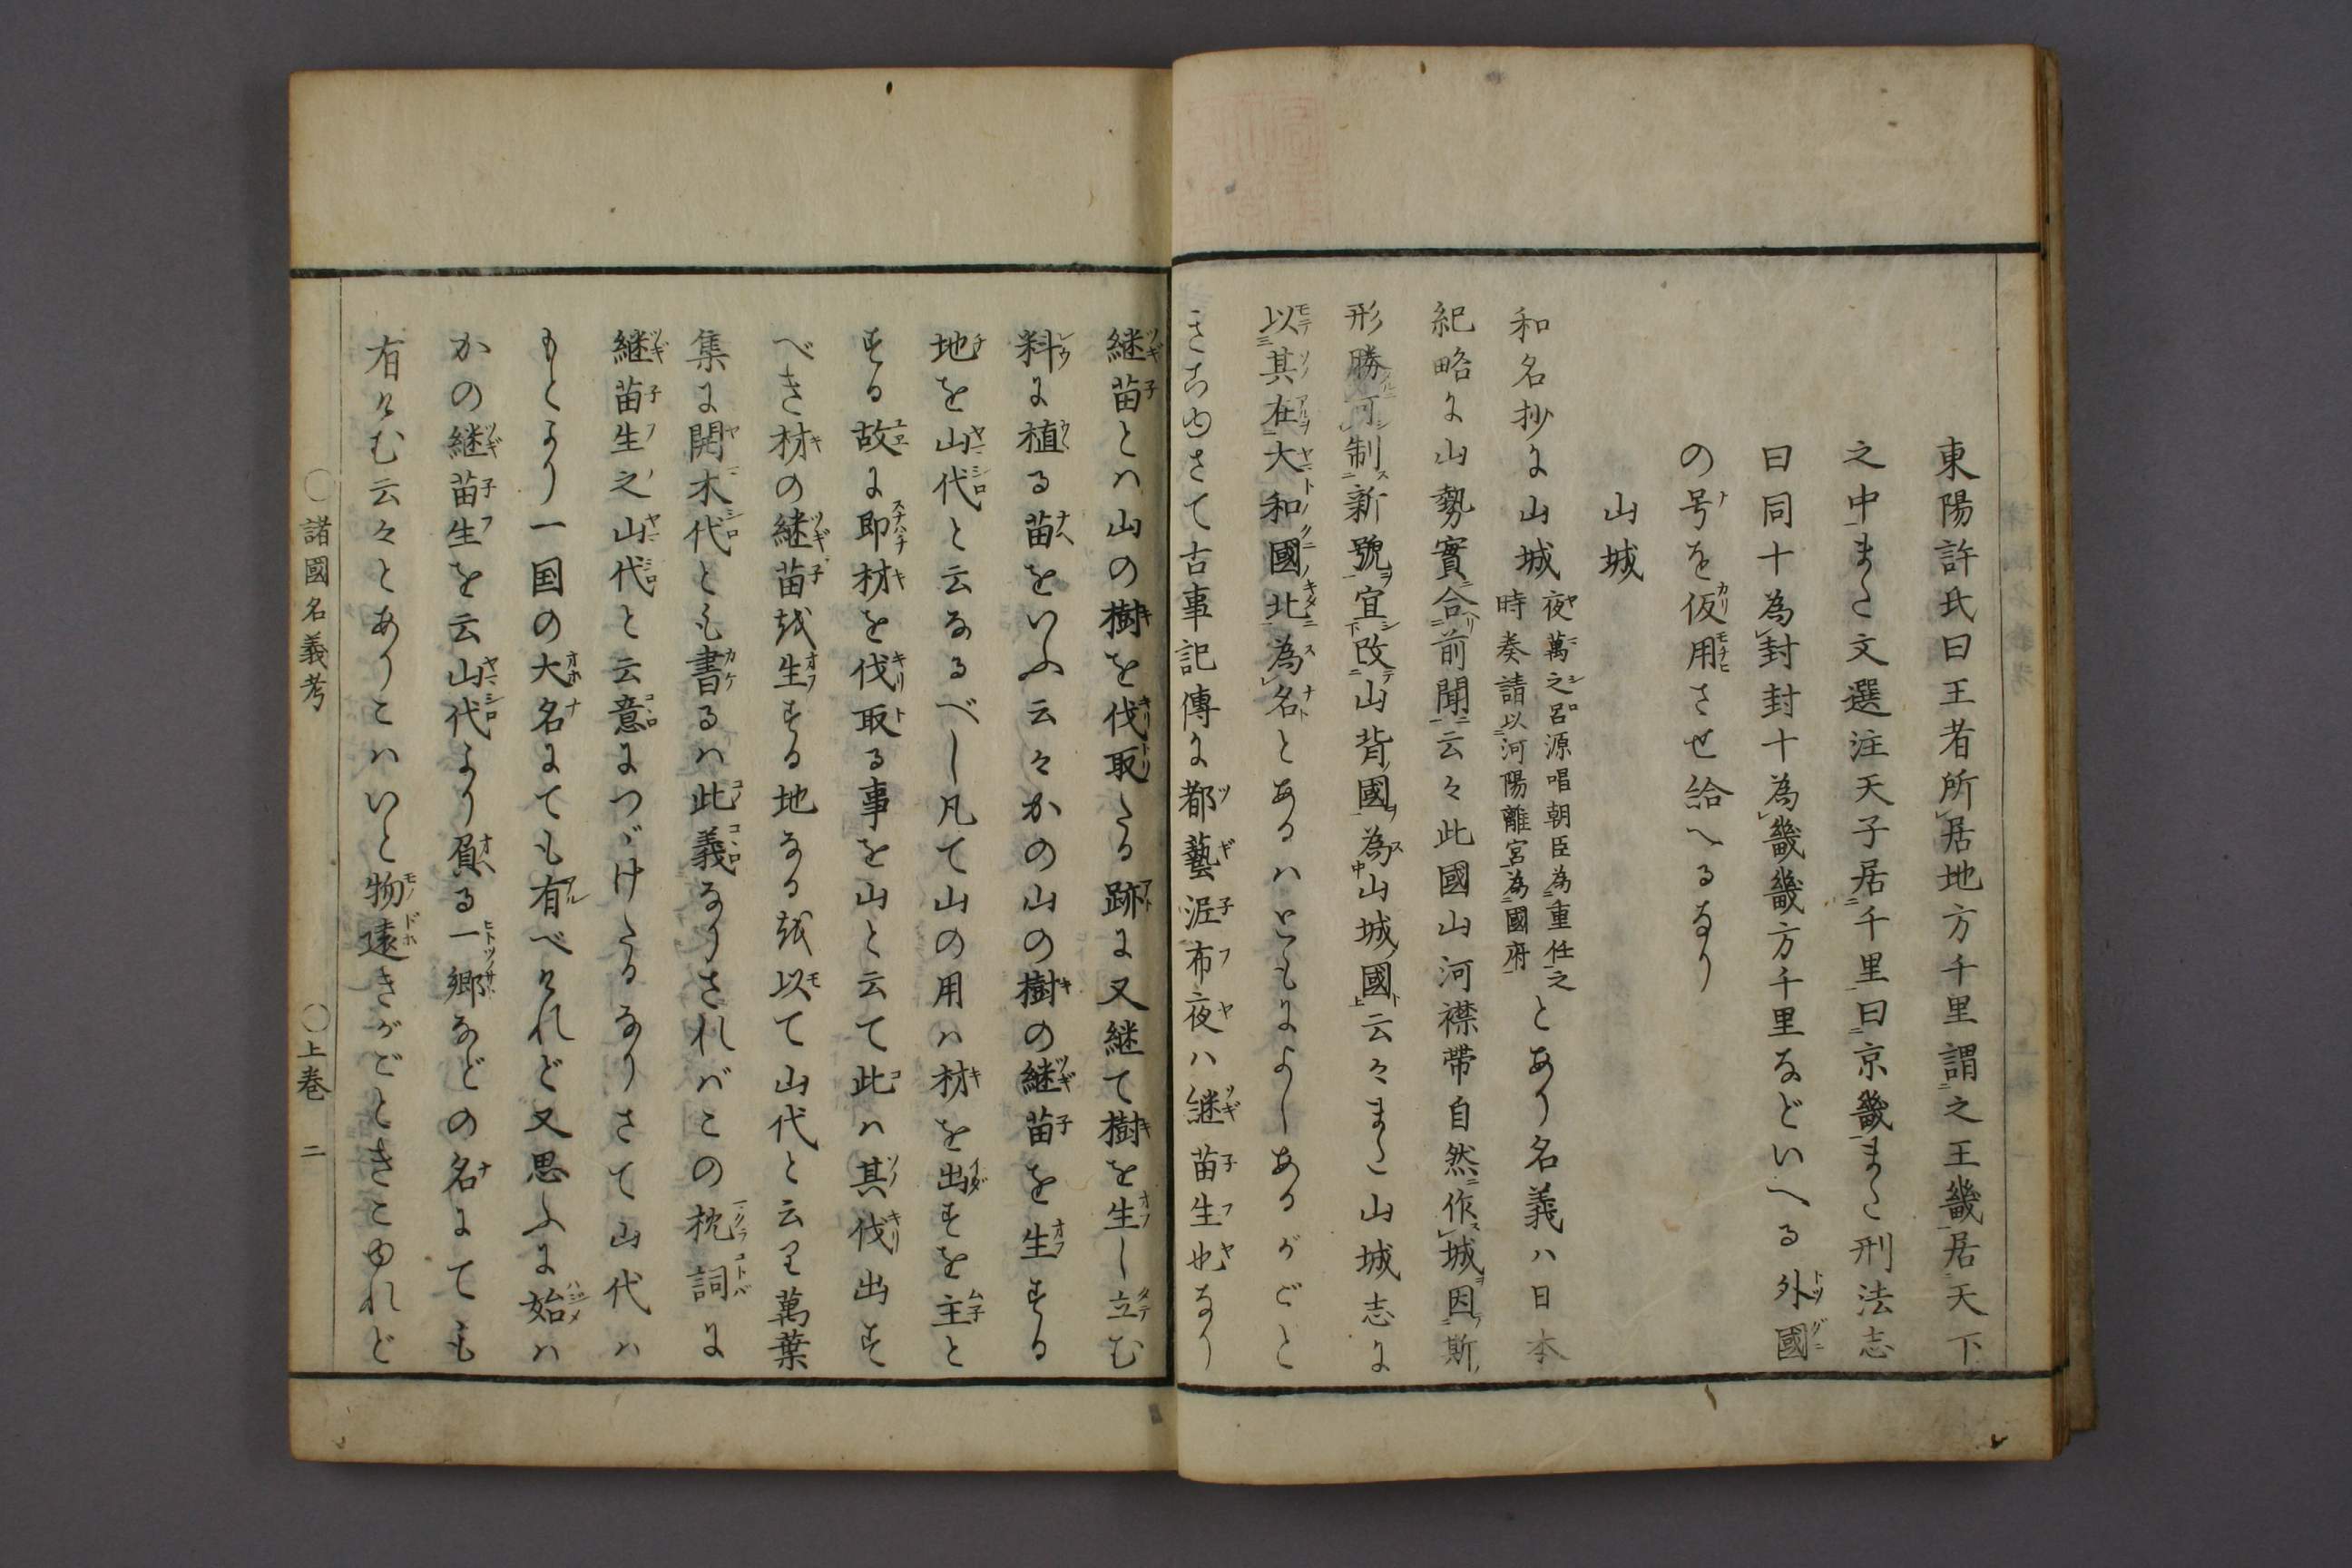 東陽許氏曰王者所居地方千里謂之王畿居天下
之中また文選注天子居千里曰京畿また刑法志
曰同十為封封十為畿畿方千里などいへる外國
の号を仮用させ給へるなり
山城
和名抄に山城夜萬之呂源唱朝臣為重任之時奏請以河陽離宮為國府とあり名義ハ日本
紀略に山勢實合前聞云々此國山河襟帶自然作城因斯
形勝可制新號宜改山背國為山城國云々また山城志に
以其在大和國北為名とあるハともによしあるがごと
きこゆさて古事記傳に都藝泥布夜ハ継苗生也なり
継苗とハ山の樹を伐取たる跡に又継て樹を生し立む
料に植る苗をいふ云々かの山の樹の継苗を生する
地を山代と云なるべし凡て山の用ハ材を出すを主と
する故に即材を伐取る事を山と云て此ハ其伐出す
べき材の継苗を生する地なるを以て山代と云り萬葉
集に開木代とも書るハ此義なりさればこの枕詞に
継苗生之山代と云意につゞけたるなりさて山代ハ
もとより一国の大名にても有べけれど又思ふに始ハ
かの継苗生を云山代より負る一郷などの名にても
有けむ云々とありこハいと物遠きがごときこゆれど
〇諸國名義考 〇上巻 二